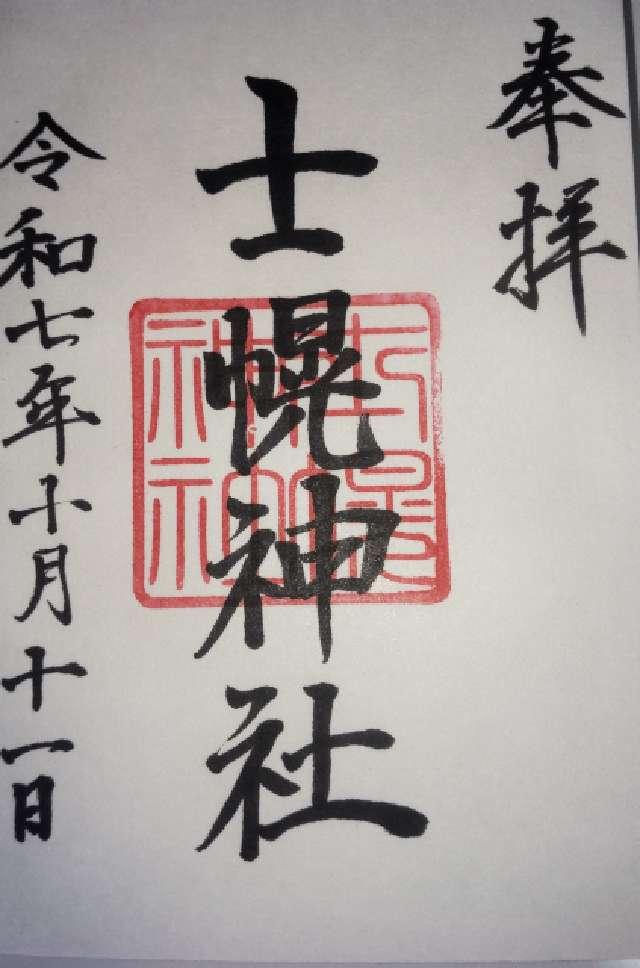 奉拝
士幌神社
令和七年十月十一日
士幌神社